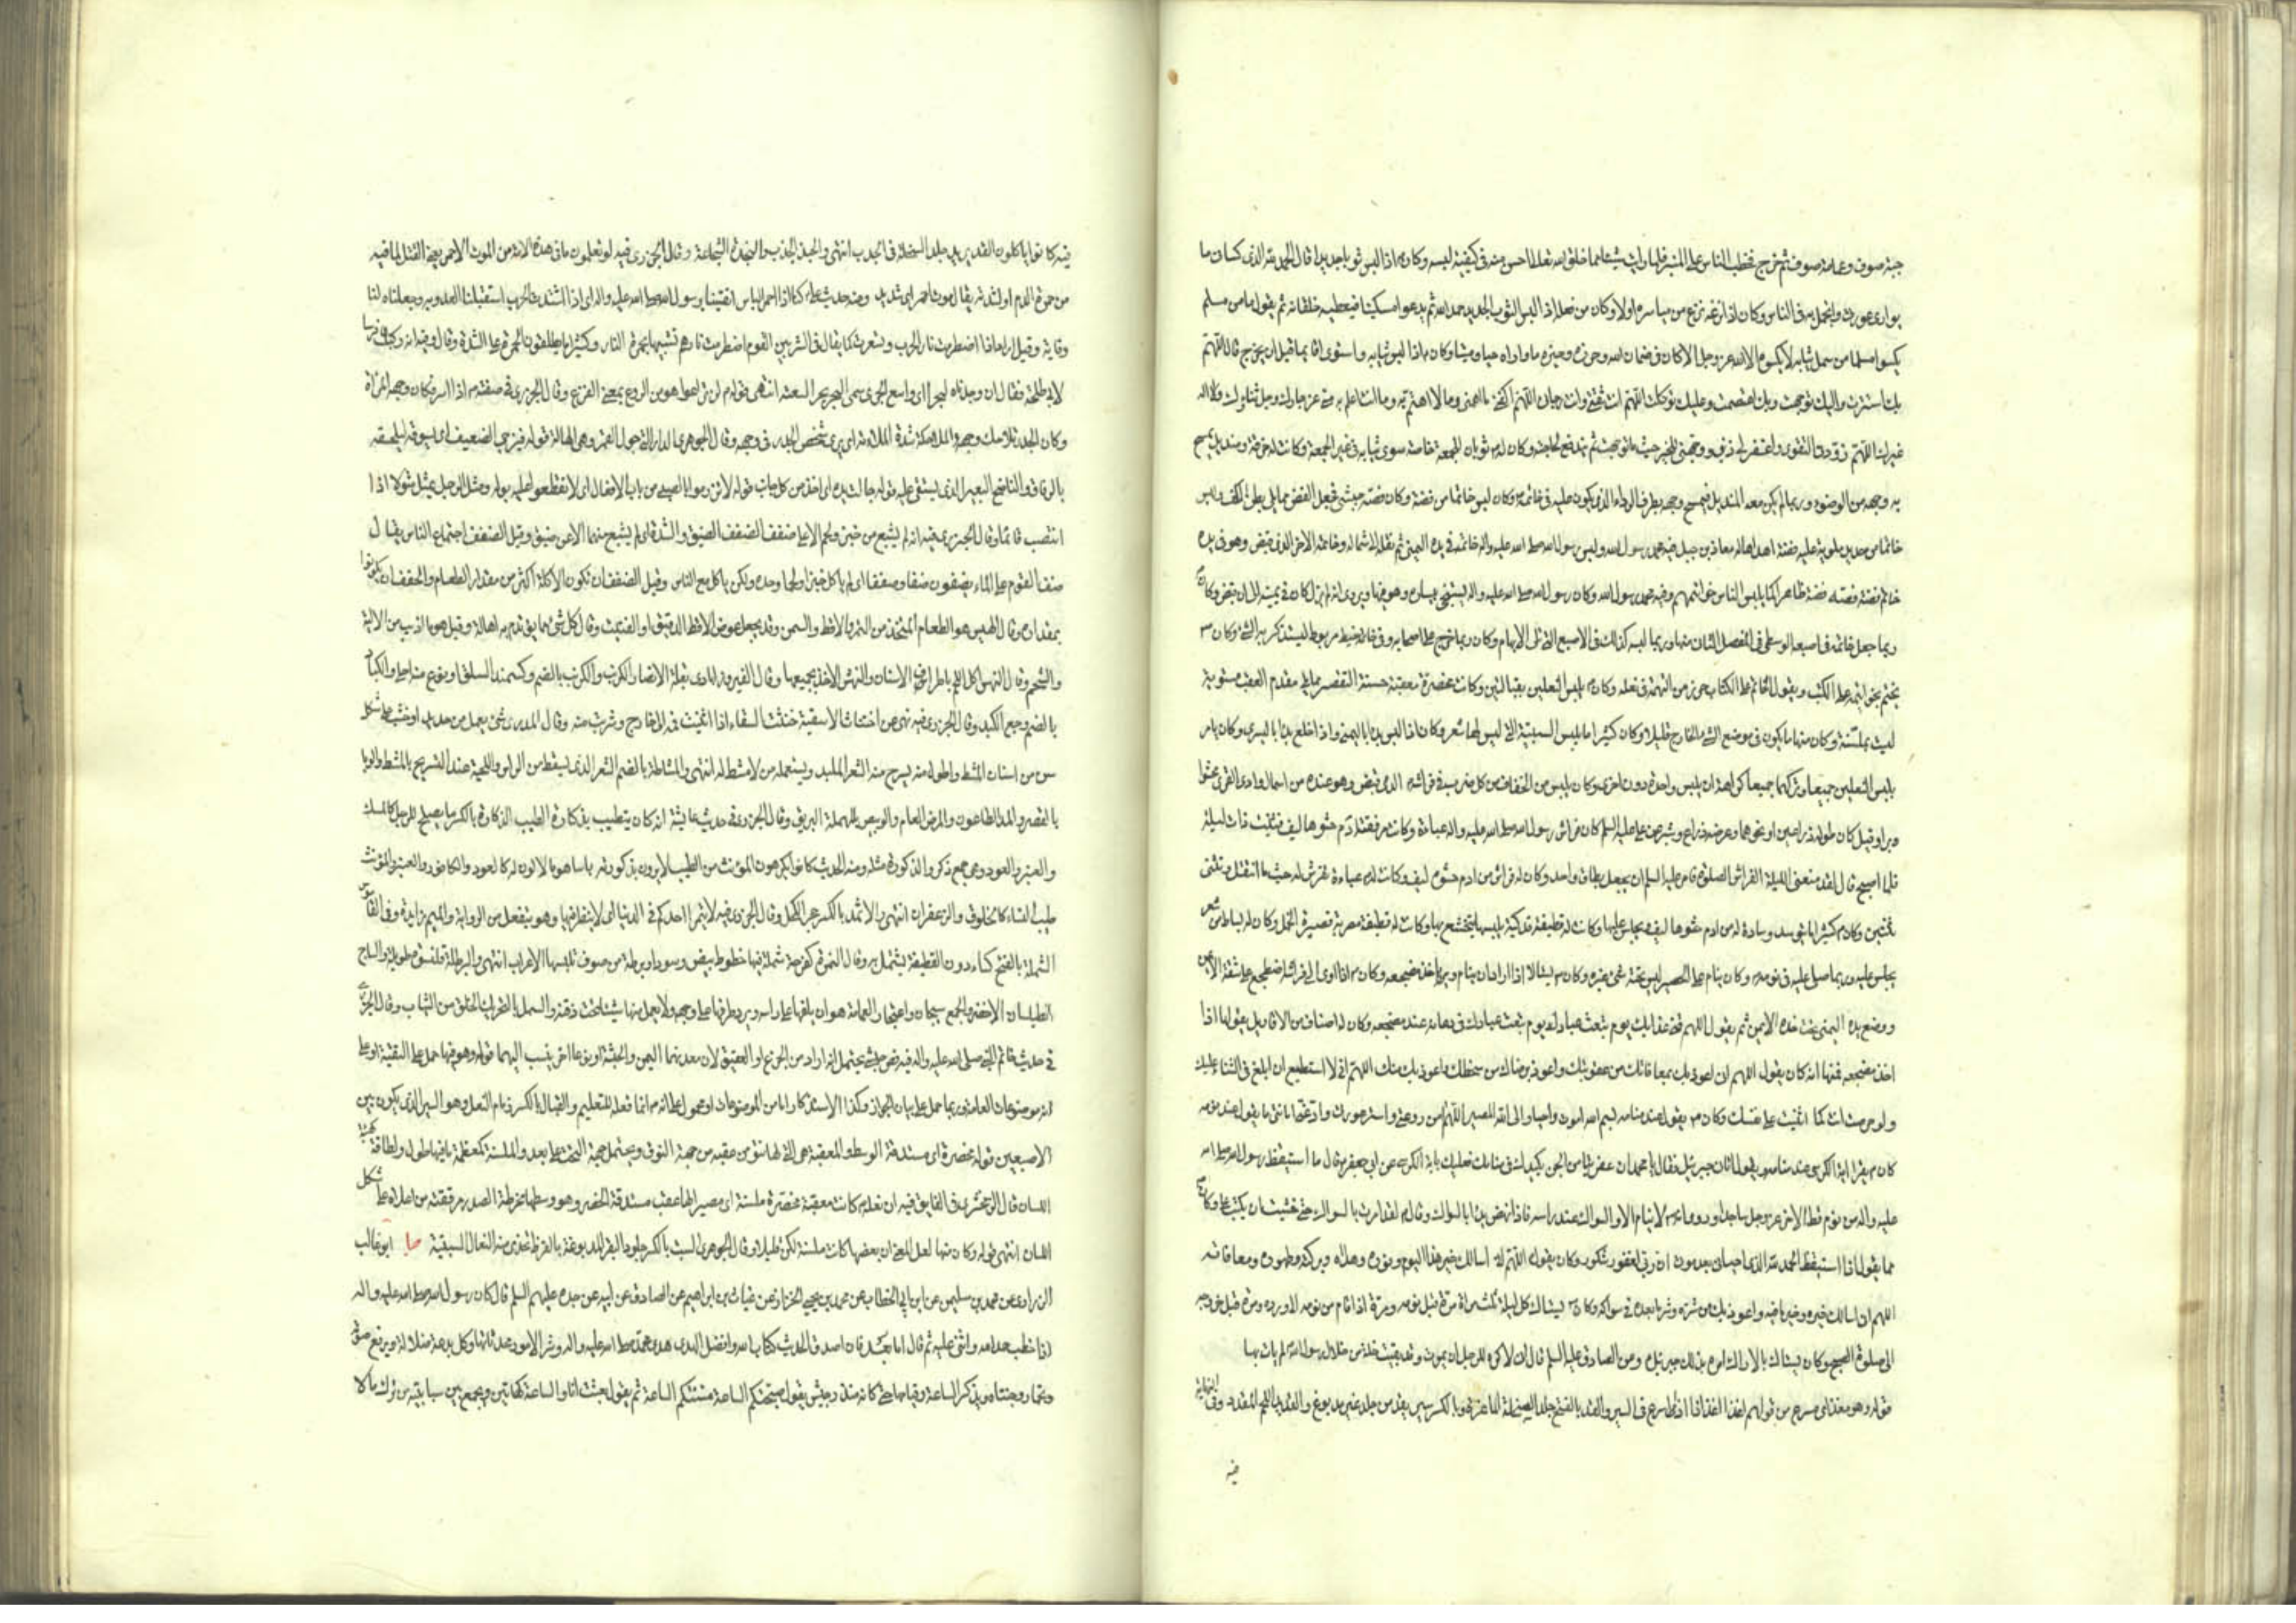 جبة صوف وعمامة صوف ثم خرج فخطب الناس على المنبر فما رايت شيئا مما خلق الله تعالى احسن منه في كيفية لبسه وكان اذا لبس ثوبا جديدا قال الحمد لله الذي كساني ما
يواري عورتي واتجمل به في الناس وكان اذا نزعه نزع من مياسره اولا وكان من فعله اذا لبس الثوب الجديد حمد الله ثم يدعو مسكينا فيعطيه خلقانه ثم يقول ما من مسلم
يكسو مسلما من سمل ثيابه لا يكسوه الا الله عز وجل الا كان في ضمان الله وحرزه وخيره ما واراه حيا وميتا وكان اذا لبس ثيابه واستوى قائما قبل ان يخرج قال اللهم
بك استترت واليك توجهت وبك اعتصمت وعليك توكلت اللهم انت ثقتي وانت رجائي اللهم اكفني ما اهمني وما لا اهتم به وما انت اعلم به مني عز جارك وجل ثناؤك ولا اله
غيرك اللهم زودني التقوى واغفر لي ذنبي ووجهني للخير حيث ما توجهت ثم يندفع لحاجته وكان له ثوبان للجمعة خاصة سوى ثيابه في غير الجمعة وكانت له خرقة ومنديل يمسح
به وجهه من الوضوء وربما لم يكن معه المنديل فيمسح وجهه بطرف الرداء الذي يكون عليه في خاتمه وكان لبس خاتما من فضة وكان فصه حبشي فجعل الفص مما يلي بطن الكف ولبس
خاتما من حديد ملوي عليه فضة اهداها له معاذ بن جبل فيه محمد رسول الله ولبس رسول الله صلى الله عليه واله خاتمه في يده اليمنى ثم نقله الى شماله وخاتمه الاخر الذي قبض وهو في يده
خاتم فضة فصه فضة ظاهرا كما يلبس الناس خواتيمهم وفيه محمد رسول الله وكان رسول الله صلى الله عليه واله يستنجي بيساره وهو فيها ويروى انه لم يزل كان في يمينه الى ان قبض وكان
ربما جعل خاتمه في اصبعه الوسطى في المفصل الثاني منها وربما لبسه كذلك في الاصبع التي تلي الابهام وكان ربما خرج على اصحابه وفي خاتمه خيط مربوط ليستذكر به الشئ وكان
يختم بخواتيمه على الكتب ويقول الخاتم على الكتاب حرز من التهمة في نعله وكان يلبس النعلين بقبالين وكانت مخصرة معقبة حسنة التخصير مما يلي مقدم العقب مستوية
ليست بملسنة وكان منها ما يكون في موضع الشئ الخارج قليلا وكان كثيرا ما يلبس السبتية التي ليس لها شعر وكان اذا لبس بدا باليمنى واذا خلع بدا باليسرى وكان يامر
بلبس النعلين جميعا وتركهما جميعا كراهة ان يلبس واحدة دون اخرى وكان يلبس من الخفاف من كل ضرب في فراشه الذي قبض وهو عنده من اسمال وادي القرى محشوا
وبرا وقيل كان طوله ذراعين او نحوهما وعرضه ذراع وشبر عن علي عليه السلم كان فراش رسول الله صلى الله عليه واله عباءة وكانت مرفقته ادم حشوها ليف فثنيت ذات ليلة
فلما اصبح قال لقد منعني الليلة الفراش الصلوة فامر عليه السلم ان يجعل بطاق واحد وكان له فراش من ادم حشوه ليف وكانت له عباءة تفرش له حيث ما انتقل وتثنى
ثنتين وكان كثيرا ما يتوسد وسادة له من ادم حشوها ليف ويجلس عليها وكانت له قطيفة فدكية يلبسها يتخشع بها وكانت له قطيفة مصرية قصيرة الخمل وكان له بساط من شعر
يجلس عليه وربما صلى عليه في نومه وكان ينام على الحصير ليس تحته شئ غيره وكان يستاك اذا اراد ان ينام وياخذ مضجعه وكان اذا اوى الى فراشه اضطجع على شقه الايمن
ووضع يده اليمنى تحت خده الايمن ثم يقول اللهم قني عذابك يوم تبعث عبادك يوم تبعث عبادك في دعائه عند مضجعه وكان له اصناف من الاقاويل يقولها اذا
اخذ مضجعه فمنها انه كان يقول اللهم اني اعوذ بك بمعافاتك من عقوبتك واعوذ برضاك من سخطك واعوذ بك منك اللهم اني لا استطيع ان ابلغ في الثناء عليك
ولو حرصت انت كما اثنيت على نفسك وكان يقول عند منامه بسم الله اموت واحيا والى الله المصير اللهم امن روعتي واستر عورتي واد عني امانتي ما يقول عند نومه
كان يقرا اية الكرسي عند منامه ويقول اتاني جبرئيل فقال يا محمد ان عفريتا من الجن يكيدك في منامك فعليك باية الكرسي عن ابي جعفر قال ما استيقظ رسول الله صلى الله
عليه واله من نوم قط الا خر عز وجل ساجدا وروي انه لا ينام الا والسواك عند راسه فاذا نهض بدا بالسواك وقال لقد امرت بالسواك حتى خشيت ان يكتب علي وكان
مما يقول اذا استيقظ الحمد لله الذي احياني بعد موتي ان ربي لغفور شكور وكان يقول اللهم اني اسالك خير هذا اليوم ونوره وهداه وبركته وطهوره ومعافاته
اللهم اني اسالك خيره وخير ما فيه واعوذ بك من شره وشر ما بعده في سواكه وكان يستاك كل ليلة ثلث مرات مرة قبل نومه ومرة اذا قام من نومه الى ورده ومرة قبل خروجه
الى صلوة الصبح وكان يستاك بالاراك امره بذلك جبرئيل وعن الصادق عليه السلم قال اني لاكره للرجل ان يموت وقد بقيت خلة من خلال رسول الله لم يات بها
قوله وهو مغذ اي مسرع من قولهم اغذ اغذاذا اذا اسرع في السير والقد بالفتح جلد السخلة الماعزة وبالكسر سير يقد من جلد غير مدبوغ والقديد اللحم المقدد وفي النهاية
فيه
فيه كانوا ياكلون القد يريد جلد السخلة في الجدب انتهى وقال الجزري فيه لو تعلمون ما في هذه الامة من الموت الاحمر يعني القتل لما فيه
من حمرة الدم او لشدته يقال موت احمر اي شديد ومنه حديث علي كنا اذا احمر الباس اتقينا برسول الله صلى الله عليه واله اي اذا اشتدت الحرب استقبلنا العدو به وجعلناه لنا
وقاية وقيل اراد اذا اضطرمت نار الحرب وتسعرت كما يقال في الشر بين القوم اضطرمت نارهم تشبيها بحمرة النار وكثيرا ما يطلقون الحمرة على الشدة وقال وفيه انه ركب فرسا
لابي طلحة فقال ان وجدناه لبحرا اي واسع الجري سمي البحر بحرا لسعته انتهى قوله لن تراعوا هو من الروع بمعنى الفزع وقال الجزري في صفته اذا سر فكان وجهه المراة
وكان الجدر تلاحك وجهه الملاحكة شدة الملائمة اي يرى شخص الجدر في وجهه وقال الجوهري الدارة التي حول القمر وهي الهالة قوله فيزجي الضعيف اي يسوقه ليلحقه
بالرفاق والناضح البعير الذي يستقى عليه قوله جالت يده اي اخذ من كل جانب قوله لا تزرموا بالصبي من باب الافعال اي لا تقطعوا عليه بوله ومثل الرجل يمثل مثولا اذا
انتصب قائما وقال الجزري فيه انه لم يشبع من خبز ولحم الا على ضفف الضفف الضيق والشدة اي لم يشبع منهما الا عن ضيق وقيل الضفف اجتماع الناس يقال
ضف القوم على الماء يضفون ضفا وضففا اي لم ياكل خبزا ولحما وحده ولكن ياكل مع الناس وقيل الضفف ان تكون الاكلة اكثر من مقدار الطعام والحفف ان يكونوا
بمقداره وقال الحيس هو الطعام المتخذ من التمر والاقط والسمن وقد يجعل عوض الاقط الدقيق او الفتيت وقال كل شئ مما يؤتدم به اهالة وقيل هو ما اذيب من الالية
والشحم وقال النهس اكل اللحم باطراف الاسنان والنهش الاخذ بجميعها وقال الفيروزابادي بقلة الانصار الكرنب والكرنب بالضم وكسمند السلق او نوع منه احلى والكباد
بالضم وجع الكبد وقال الجزري فيه نهى عن اختناث الاسقية خنثت السقاء اذا اثنيت فمه الى خارج وشربت منه وقال المدرى شئ يعمل من حديد او خشب على شكل
سن من اسنان المشط واطول منه يسرح منه الشعر الملبد ويستعمله من لا مشط له انتهى والمشاطة بالضم الشعر الذي يسقط من الراس واللحية عند التسريح بالمشط والوبا
بالقصر والمد الطاعون والمرض العام والوبيص بالمهملة البريق وقال الجزري في حديث عايشة انه كان يتطيب بذكارة الطيب الذكارة بالكسر ما يصلح للرجل كالمسك
والعنبر والعود وهي جمع ذكر والذكورة مثله ومنه الحديث كانوا يكرهون المؤنث من الطيب ولا يرون بذكورته باسا هو ما لا لون له كالعود والكافور والعنبر والمؤنث
طيب النساء كالخلوق والزعفران انتهى والاثمد بالكسر حجر الكحل وفي القاموس
الشملة بالفتح كساء دون القطيفة يشتمل به وقال النمرة كفرحة شملة فيها خطوط بيض وسود او بردة من صوف تلبسها الاعراب انتهى والبرطلة قلنسوة طويلة والساج
الطيلسان الاخضر والجمع سيجان واعتجار العمامة هو ان يلفها على راسه ويرد طرفها على وجهه ولا يعمل منها شيئا تحت ذقنه والسمل بالتحريك الخلق من الثياب وقال الجزري
في حديث خاتم النبي صلى الله عليه واله فيه فص حبشي يحتمل انه اراد من الجزع او العقيق لان معدنهما اليمن والحبشة او نوعا اخر ينسب اليهما قوله وهو فيها حمل على التقية او على
انه من موضوعات العامة وربما حمل على بيان الجواز والقبال بالكسر زمام النعل وهو السير الذي يكون بين
الاصبعين قوله مخصرة اي مستدقة الوسط والمعقبة هي التي لها عقب والملسنة كمعظمة ما فيها طول ولطافة كهيئة
اللسان قال الزمخشري في الفايق فيه ان نعله كانت معقبة مخصرة ملسنة اي مصير لها عقب مستدقة الخصر وهو وسطها مخرطة الصدر مرققته من اعلاه على شكل
اللسان انتهى قوله وكان منها لعل المعنى ان بعضها كانت ملسنة لكن قليلا وقال الجوهري السبت بالكسر جلود البقر المدبوغة بالقرظ تحذى منه النعال السبتية جا ابو غالب
الزراري عن محمد بن سليمن عن ابن ابي الخطاب عن محمد بن يحيى الخزاز عن غياث بن ابراهيم عن الصادق عن ابيه عن جده عليهم السلم قال كان رسول الله صلى الله عليه واله
اذا خطب حمد الله واثنى عليه ثم قال اما بعد فان اصدق الحديث كتاب الله وافضل الهدى هدى محمد صلى الله عليه واله وشر الامور محدثاتها وكل بدعة ضلالة ويرفع صوته
وتحمار وجنتاه ويذكر الساعة وقيامها حتى كانه منذر جيش يقول صبحتكم الساعة مستكم الساعة ثم يقول بعثت انا والساعة كهاتين ويجمع بين سبابتيه من ترك مالا